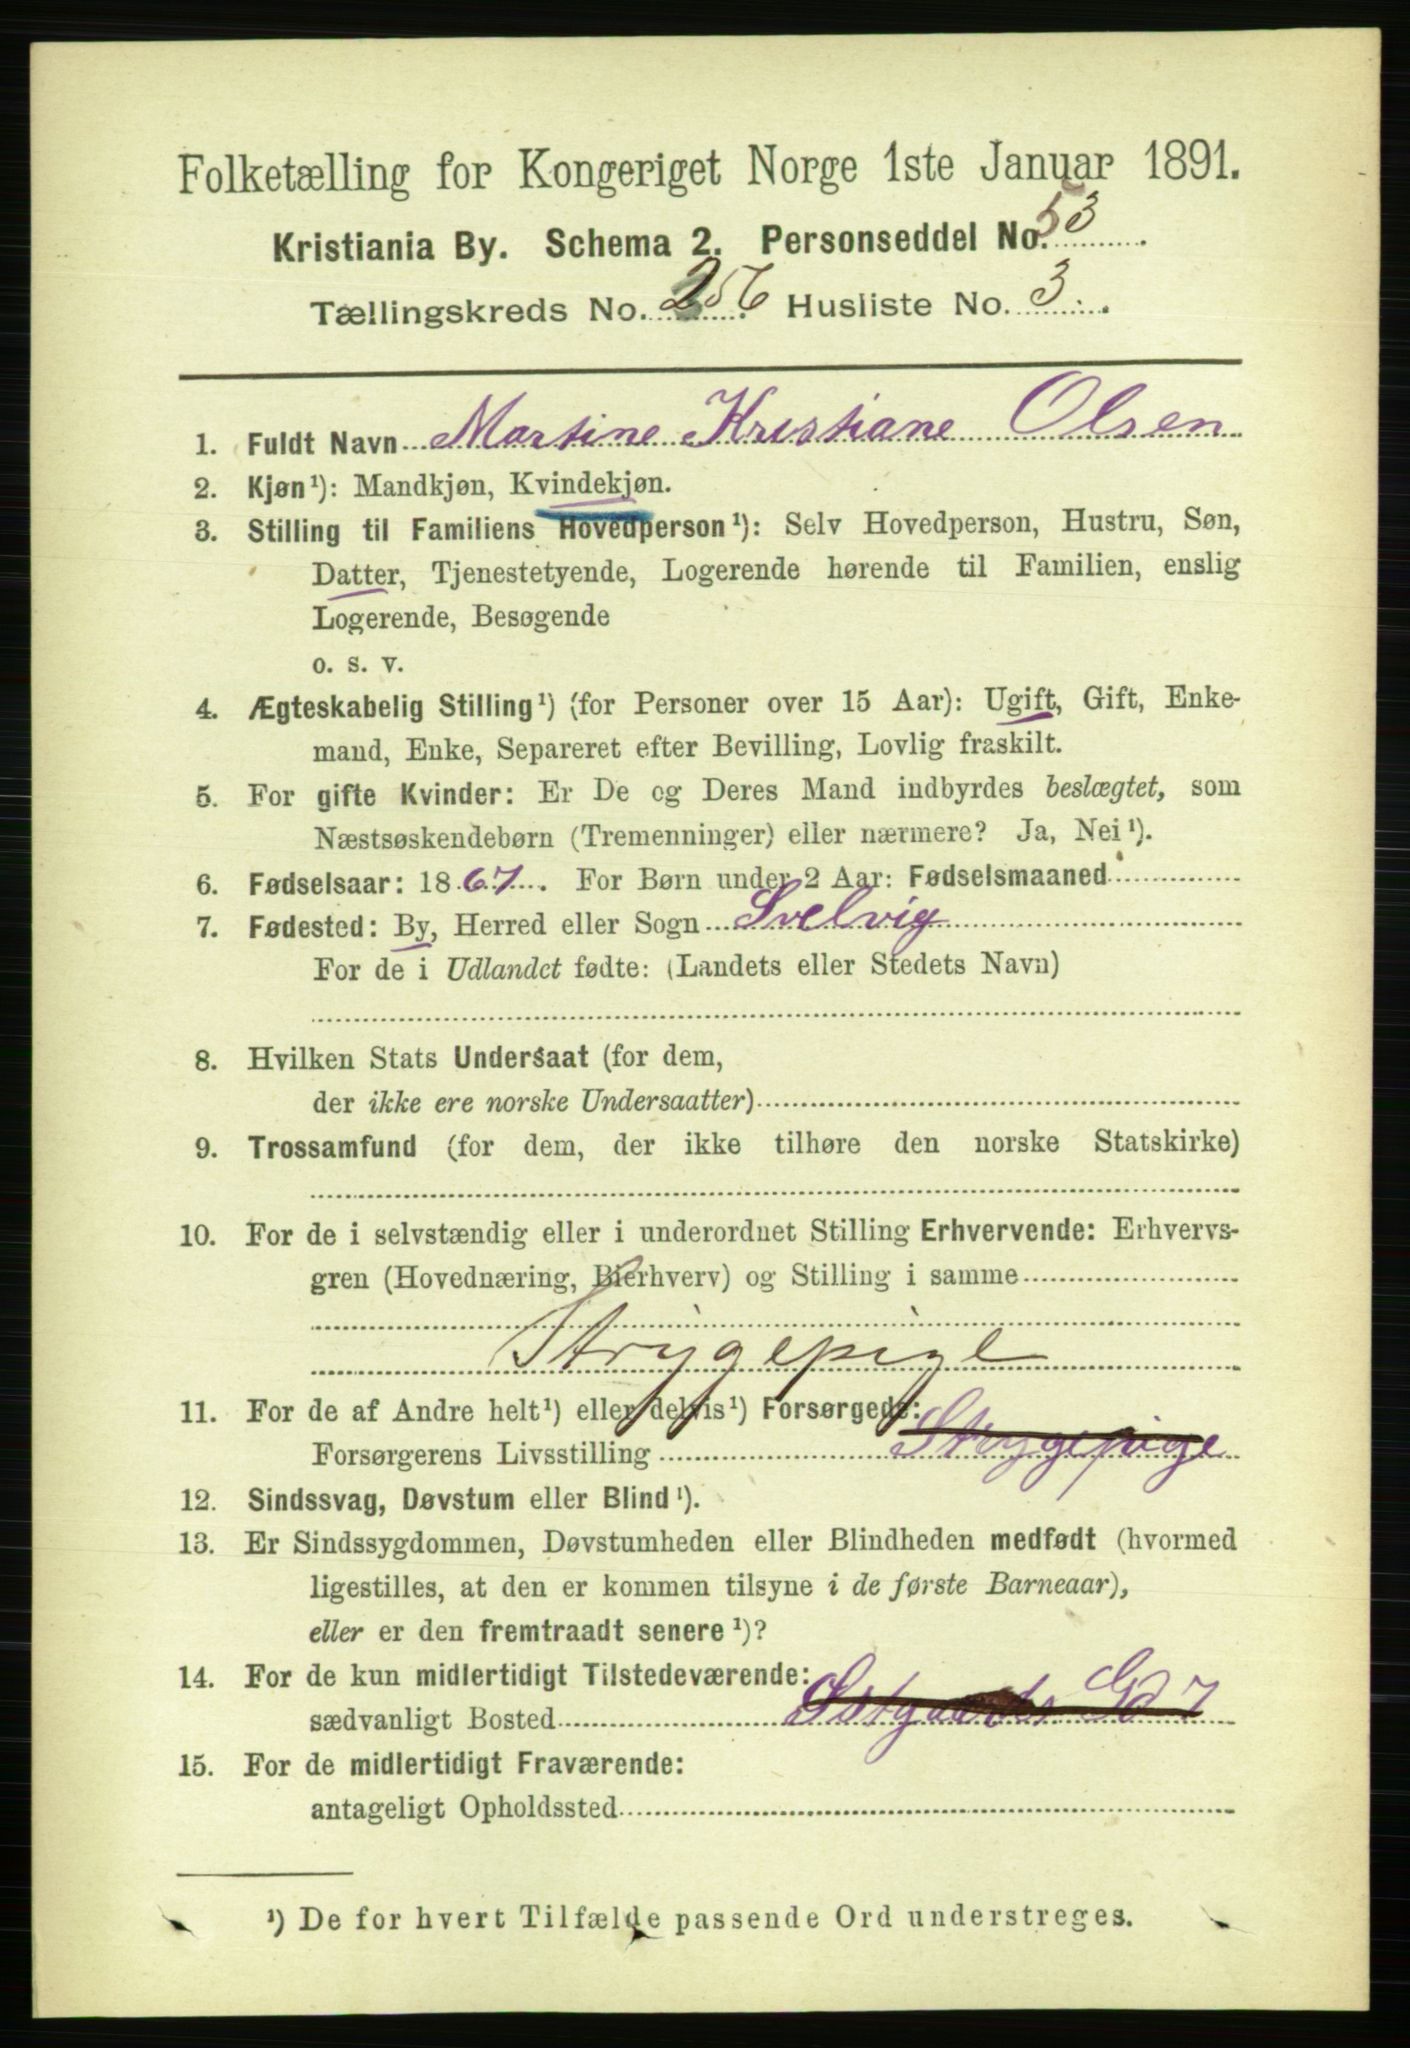 Folketælling for Kongeriget Norge 1ste Januar 1891.
Kristiania By. Schema 2. Personseddel No. 53
Tællingskreds No. 256 Husliste No. 3
1. Fuldt Navn Martine Kristiane Olsen
2. Kjøn¹): Mandkjøn, Kvindekjøn.
3. Stilling til Familiens Hovedperson¹): Selv Hovedperson, Hustru, Søn,
Datter, Tjenestetyende, Logerende hørende til Familien, enslig
Logerende, Besøgende
o. s. v.
4. Ægteskabelig Stilling¹) (for Personer over 15 Aar): Ugift, Gift, Enke-
mand, Enke, Separeret efter Bevilling, Lovlig fraskilt.
5. For gifte Kvinder: Er De og Deres Mand indbyrdes beslægtet, som
Næstsøskendebørn (Tremenninger) eller nærmere? Ja, Nei¹).
6. Fødselsaar: 1867. For Børn under 2 Aar: Fødselsmaaned
7. Fødested: By, Herred eller Sogn Svelvig
For de i Udlandet fødte: (Landets eller Stedets Navn)
8. Hvilken Stats Undersaat (for dem,
der ikke ere norske Undersaatter)
9. Trossamfund (for dem, der ikke tilhøre den norske Statskirke)
10. For de i selvstændig eller i underordnet Stilling Erhvervende: Erhvervs-
gren (Hovednæring, Bierhverv) og Stilling i samme
Strygepige
11. For de af Andre helt¹) eller delvis¹) Forsørgede:
Forsørgerens Livsstilling Strygepige
12. Sindssvag, Døvstum eller Blind¹).
13. Er Sindssygdommen, Døvstumheden eller Blindheden medfødt (hvormed
ligestilles, at den er kommen tilsyne i de første Barneaar),
eller er den fremtraadt senere¹)?
14. For de kun midlertidigt Tilstedeværende:
sædvanligt Bosted Gd 7
15. For de midlertidigt Fraværende:
antageligt Opholdssted
¹) De for hvert Tilfælde passende Ord understreges.